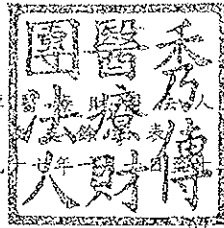 秀傳
醫療財
團法人